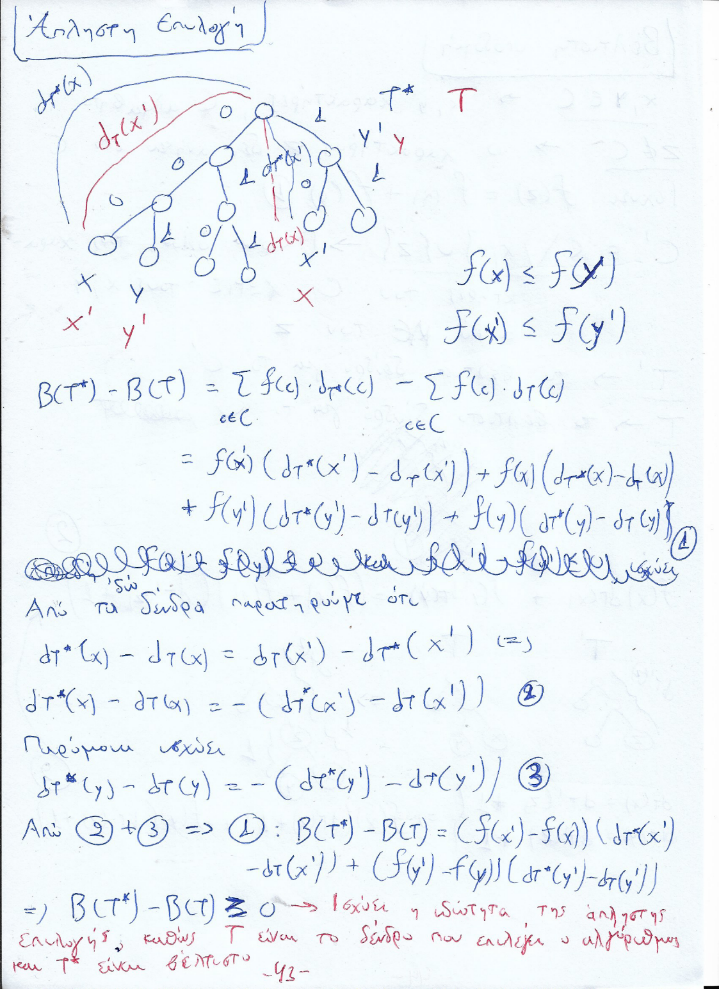 Άπληστη Επιλογή
dT*(x)
dT(x')
T* T
0 1
y' y
0 1 dT*(x') 0 1
0 1 0 1 dT(x)
x y x'
x' y' x
f(x) ≤ f(x')
f(x') ≤ f(y')
B(T*) - B(T) = Σ f(c) · dT*(c) - Σ f(c) · dT(c)
c∈C c∈C
= f(x') (dT*(x') - dT(x')) + f(x) (dT*(x) - dT(x))
+ f(y') (dT*(y') - dT(y')) + f(y) (dT*(y) - dT(y)) ①
ισχύει
Από τα δένδρα παρατηρούμε ότι
dT*(x) - dT(x) = dT(x') - dT*(x') <=>
dT*(x) - dT(x) = -(dT*(x') - dT(x')) ②
Παρόμοια ισχύει
dT*(y) - dT(y) = -(dT*(y') - dT(y')) ③
Από ② + ③ => ① : B(T*) - B(T) = (f(x') - f(x)) (dT*(x')
- dT(x')) + (f(y') - f(y)) (dT*(y') - dT(y'))
=> B(T*) - B(T) ≥ 0 → Ισχύει η ιδιότητα της άπληστης
επιλογής, καθώς T είναι το δένδρο που επιλέγει ο αλγόριθμος
και T* είναι βέλτιστο
-43-